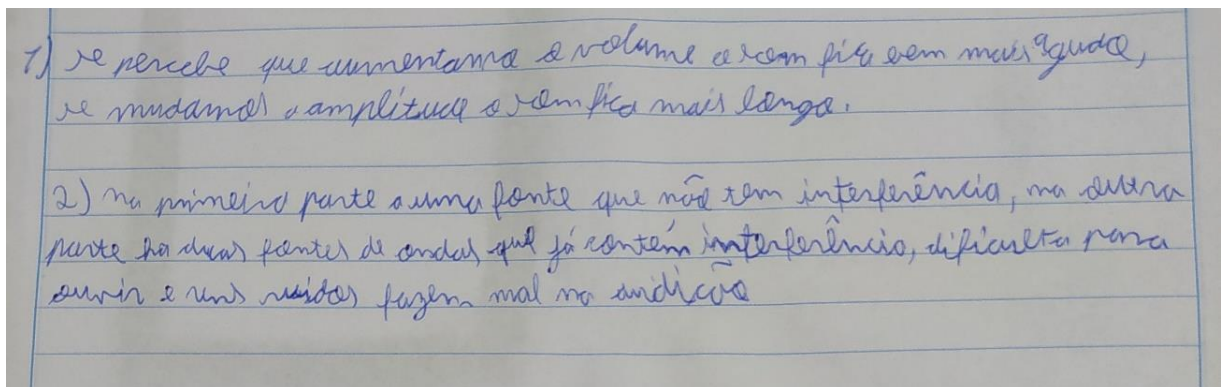 1) se percebe que aumentamo o volume o som fica bem mais agudo,
se mudamos a amplitude o som fica mais longo.
2) na primeira parte a uma fonte que não tem interferência, na outra
parte ha duas fontes de ondas que já contém interferência, dificulta para
ouvir e uns ruidos fazem mal na audicão